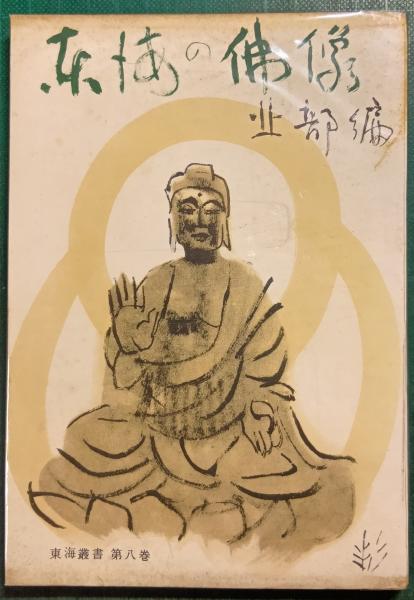 東海の佛像
北部編
東海叢書 第八巻